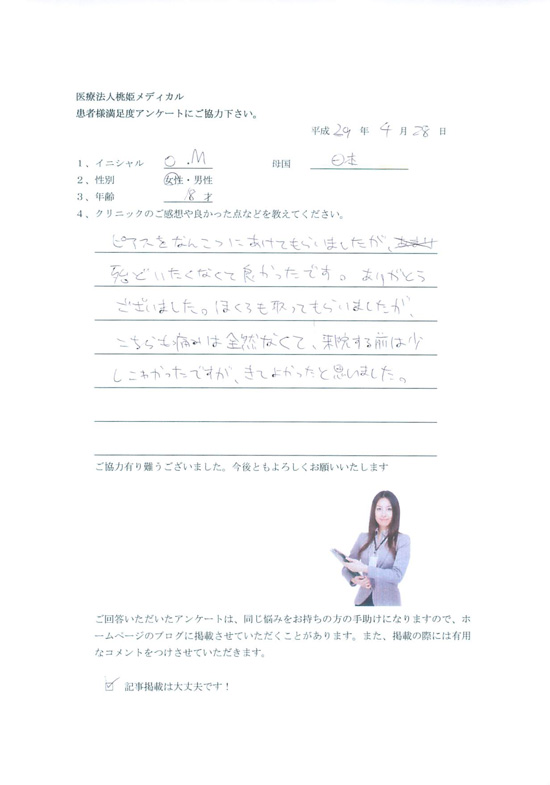 医療法人桃姫メディカル
患者様満足度アンケートにご協力下さい。
平成 29 年 4 月 28 日
1、イニシャル O.M 母国 日本
2、性別 女性・男性
3、年齢 18 才
4、クリニックのご感想や良かった点などを教えてください。
ピアスをなんこつにあけてもらいましたが、
殆どいたくなくて良かったです。ありがとう
ございました。ほくろも取ってもらいましたが、
こちらも痛みは全然なくて、来院する前は少
しこわかったですが、きてよかったと思いました。
ご協力有り難うございました。今後ともよろしくお願いいたします
ご回答いただいたアンケートは、同じ悩みをお持ちの方の手助けになりますので、ホ
ームページのブログに掲載させていただくことがあります。また、掲載の際には有用
なコメントをつけさせていただきます。
☑ 記事掲載は大丈夫です！